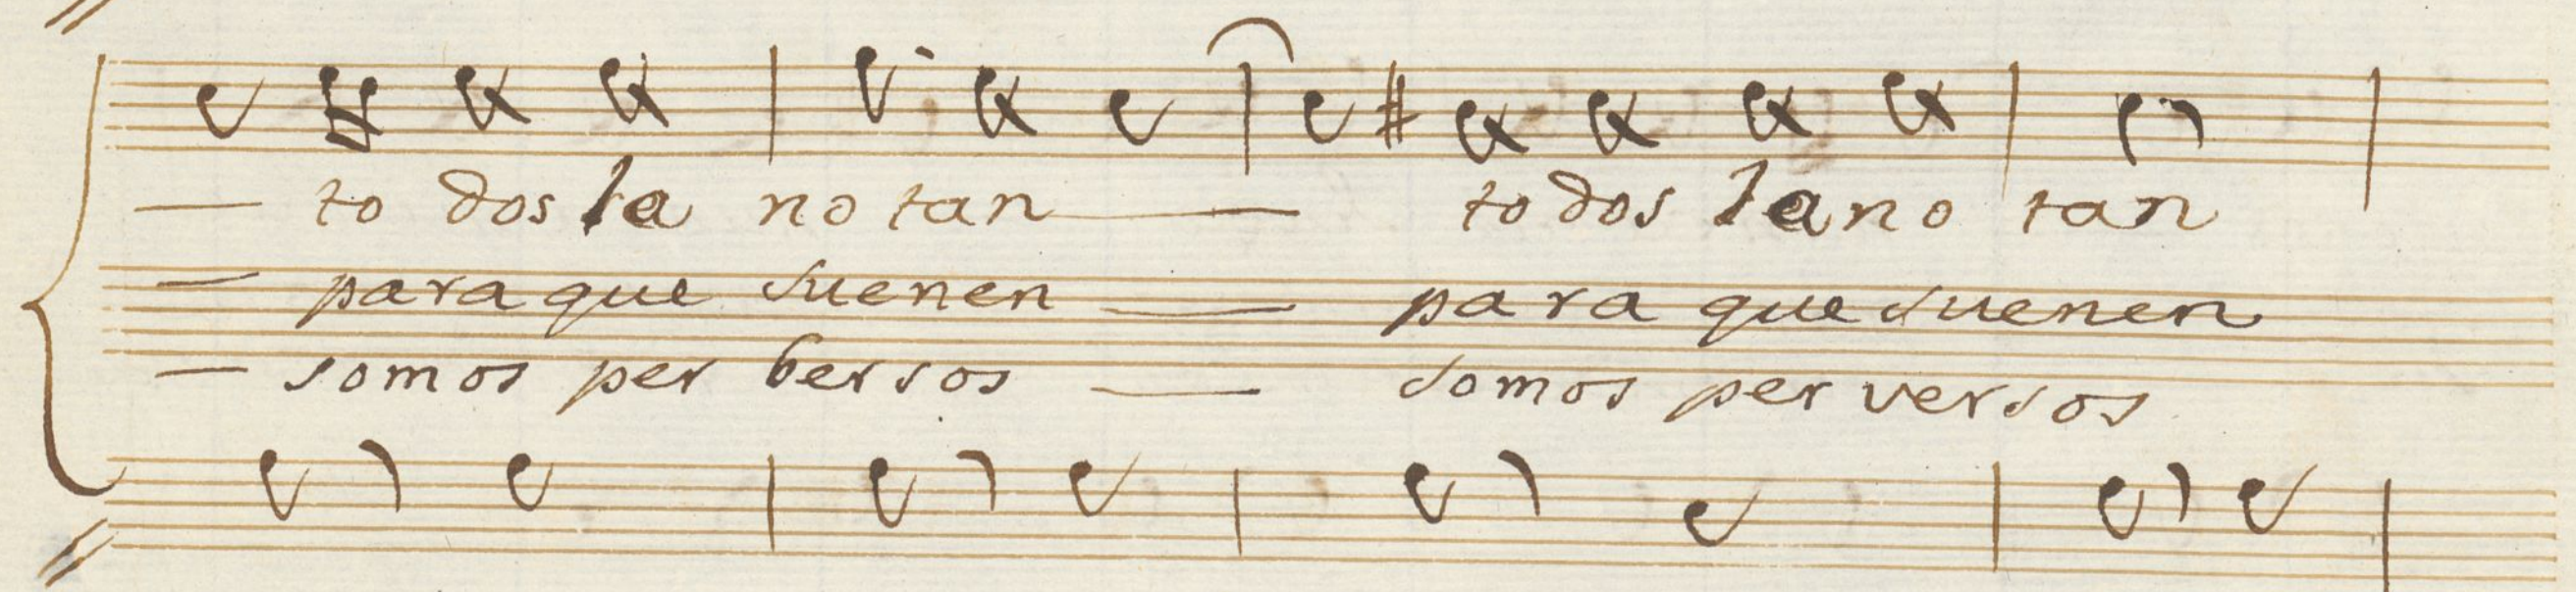 — to dos la no tan — to dos la no tan
— para que suenen — para que suenen
— somos per bersos — somos per versos